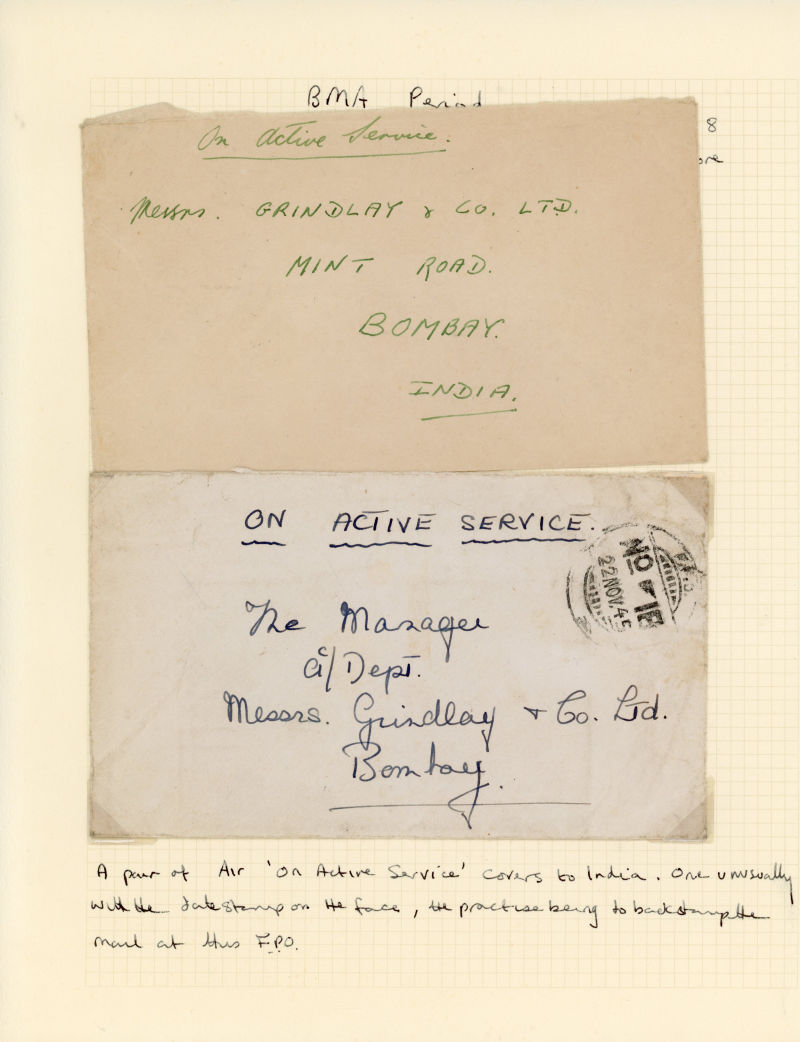 BMA Period
8
On Active Service.
Messrs. GRINDLAY & CO. LTD.
MINT ROAD.
BOMBAY.
INDIA.
ON ACTIVE SERVICE.
NO - 
22 NOV. 45
The Manager
a/c Dept.
Messrs. Grindlay + Co. Ltd.
Bombay.
A pair of Air 'On Active Service' covers to India. One unusually
with the datestamp on the face, the practise being to backstamp the
mail at this F.P.O.